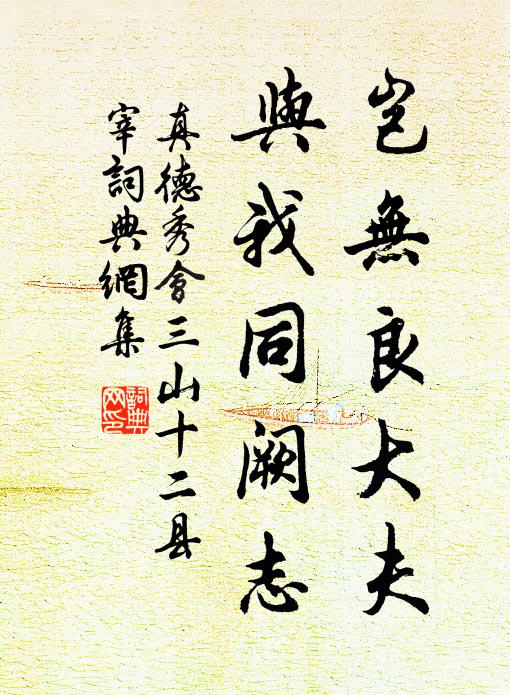 豈無良大夫
與我同闕志
真德秀會三山十二县
宰詞典網集
詞典
网印